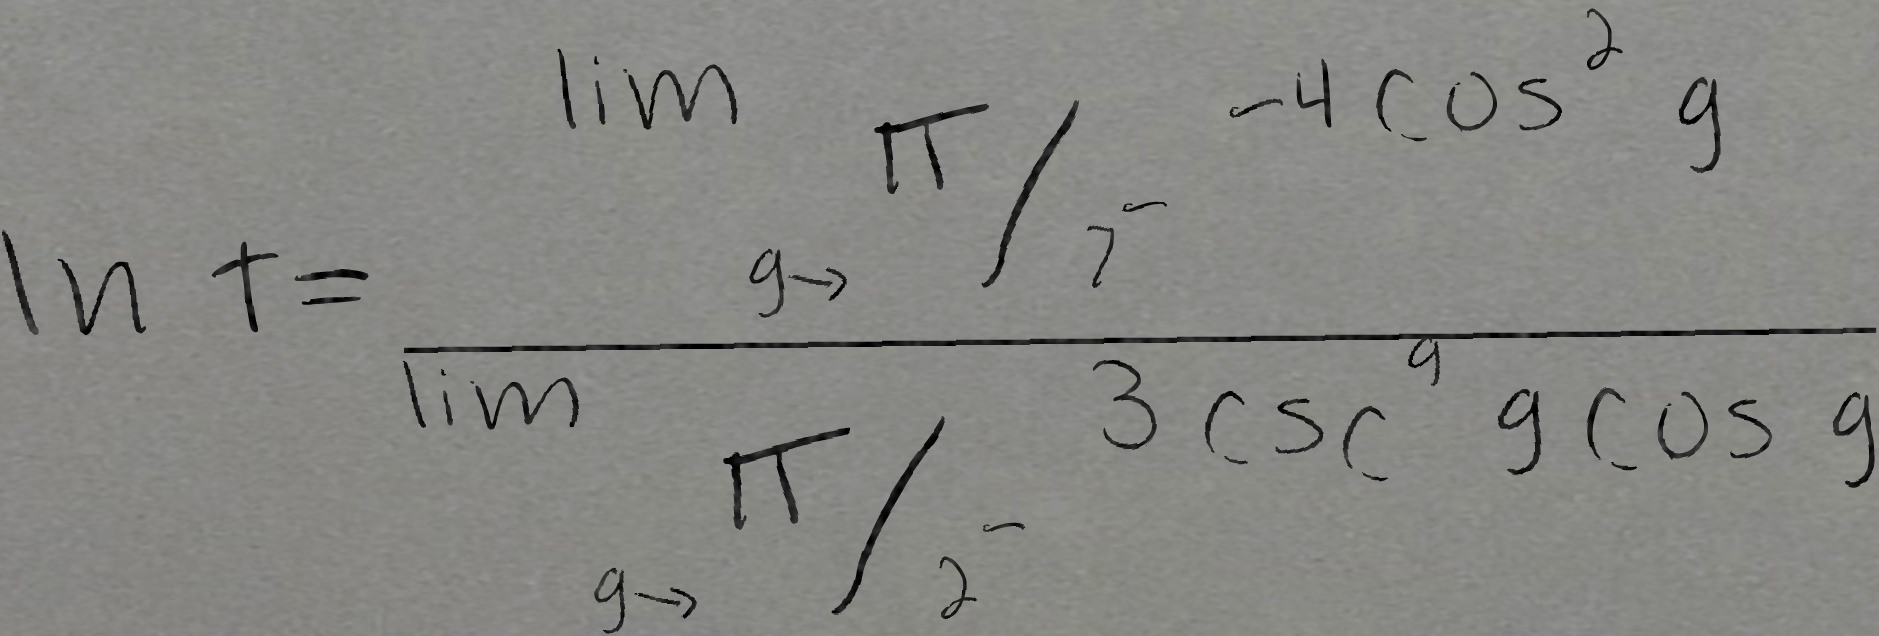 ln t = \frac{\lim_{g \to \pi/7^-} -4 \cos^2 g}{\lim_{g \to \pi/2^-} 3 \csc^9 g \cos g}